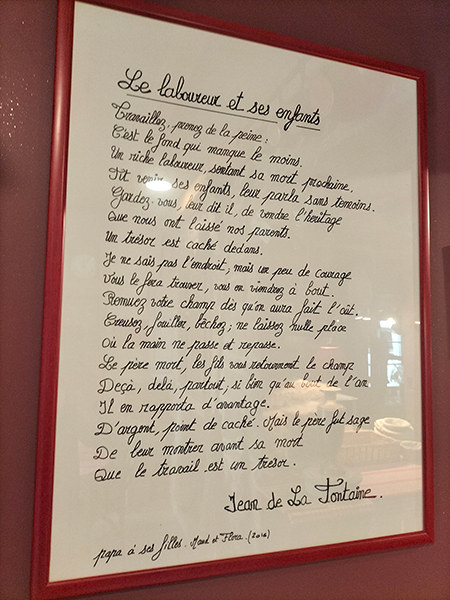 Le laboureur et ses enfants
Travaillez, prenez de la peine :
C'est le fond qui manque le moins.
Un riche laboureur, sentant sa mort prochaine,
Fit venir ses enfants, leur parla sans temoins.
Gardez-vous, leur dit il, de vendre l'héritage
Que nous ont laissé nos parents.
Un trésor est caché dedans.
Je ne sais pas l'endroit, mais un peu de courage
Vous le fera trouver, vous en viendrez à bout.
Remuez votre champ dès qu'on aura fait l'oût.
Creusez, fouiller, bêchez; ne laissez nulle place
Où la main ne passe et repasse.
Le père mort, les fils vous retournent le champ
Deçà, delà, partout; si bien qu'au bout de l'an
Il en rapporta d'avantage.
D'argent, point de caché. Mais le père fut sage
De leur montrer avant sa mort
Que le travail est un trésor.
Jean de La Fontaine.
papa à ses filles. Maud et Flora. (2016)